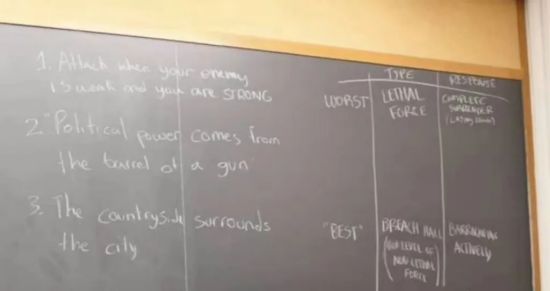 1. Attack when your enemy
is weak and you are STRONG
2 "Political power comes from
the barrel of a gun"
3. The countryside surrounds
the city
TYPE RESPONSE
WORST LETHAL FORCE COMPLETE SURRENDER
"BEST" BREACH HALL NON-LETHAL FORCE BARRICADING ACTIVELY